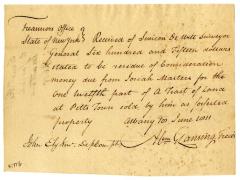 Treasurers Office of
State of New York } Received of Simeon De Witt Surveyor
General Six hundred and Fifteen dollars
stated to be residue of Consideration
money due from Josiah Masters for the
one twelfth part of A Tract of Land
at Petts Town sold by him as forfeited
property Albany 20 June 1801
John Ely